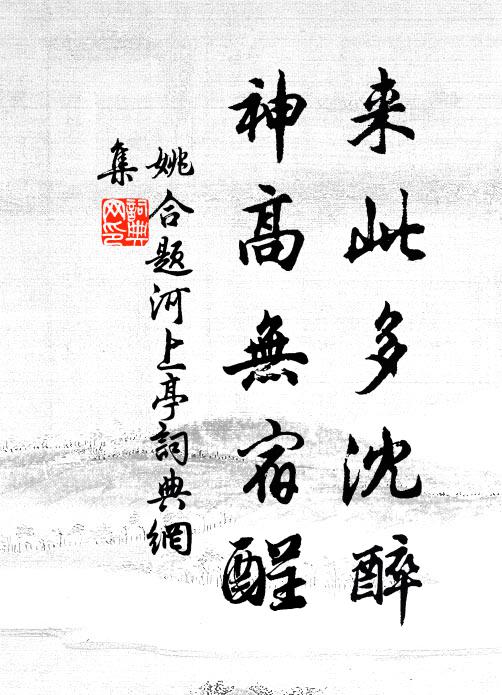 来此多沈醉
神高無宿酲
姚合題河上亭詞典網
集
詞典
网印